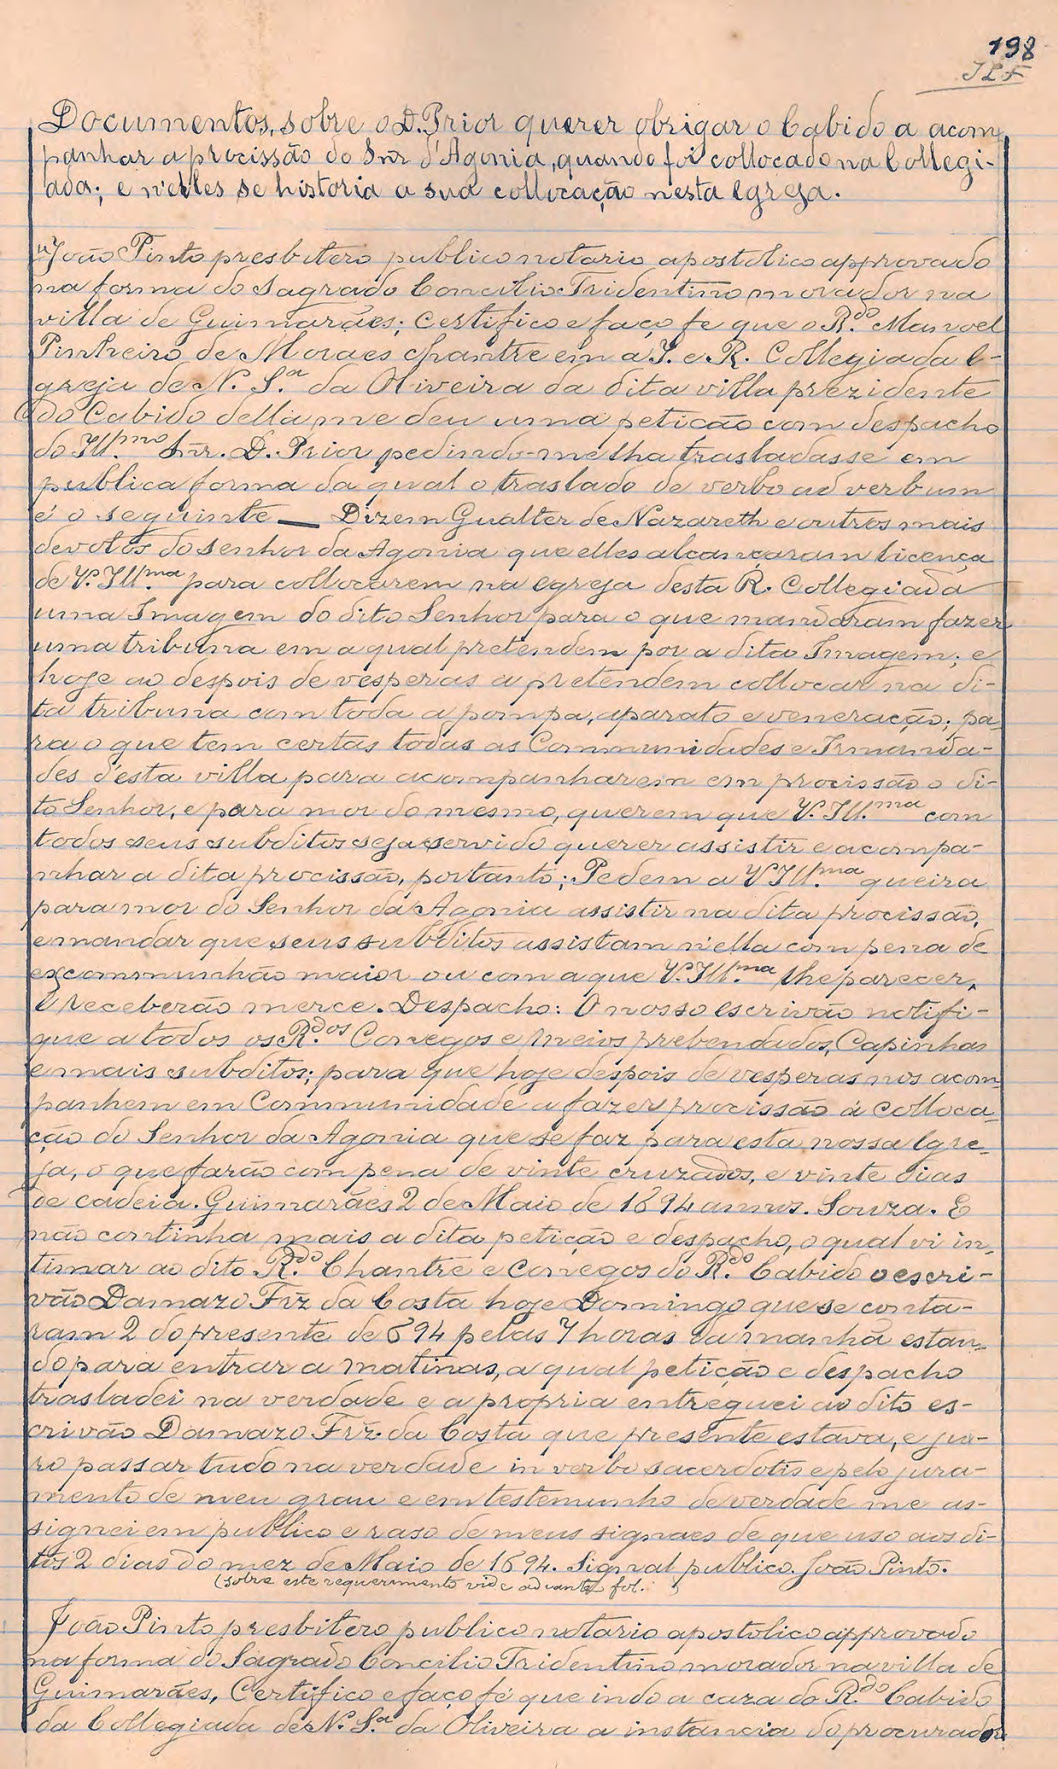 198
JLF
Documentos, sobre o D. Prior querer obrigar o Cabido a acom-
panhar a procissão do Snr d'Agonia, quando foi collocado na Collegi-
ada; e n'elles se historia a sua collocação nesta Egreja.
"João Pinto presbitero publico notario apostolico approvado
na forma do Sagrado Concilio Tridentino, morador na
villa de Guimarães; Certifico e faço fe que o R.do Manoel
Pinheiro de Moraes chantre em a I. e R. Collegiada E-
greja de N. S.a da Oliveira da dita villa prezidente
do Cabido della me deu uma petição com despacho
do Ill.mo Snr. D. Prior pedindo-me lha trasladasse em
publica forma da qual o traslado de verbo ad verbum
é o seguinte — Dizem Gualter de Nazareth e outros mais
devotos do Senhor da Agonia que elles alcançaram licença
de V. Ill.ma para collocarem na egreja desta R. Collegiada
uma Imagem do dito Senhor para o que mandaram fazer
uma tribuna em a qual pretendem por a dita Imagem; e
hoje ao despois de vesperas a pretendem collocar na di-
ta tribuna com toda a pompa, aparato e veneração; pa-
ra o que tem certas todas as Communidades e Irmanda-
des d'esta villa para acompanharem em procissão o di-
to Senhor, e para mor do mesmo, querem que V. Ill.ma com
todos seus subditos seja servido querer assistir e acompa-
nhar a dita procissão, portanto; Pedem a V Ill.ma queira
para mor do Senhor da Agonia assistir na dita procissão,
e mandar que seus subditos assistam n'ella com pena de
excommunhão maior ou com a que V. Ill.ma lhe parecer,
E receberão merce. Despacho: O nosso escrivão notifi-
que a todos os R.dos Conegos e meios prebendados, Capinhas
e mais subditos; para que hoje despois de vesperas nos acom-
panhem em Communidade a fazer procissão á colloca-
ção do Senhor da Agonia que se faz para esta nossa Egre-
ja, o que farão com pena de vinte cruzados, e vinte dias
de cadeia. Guimarães 2 de Maio de 1694 annos. Souza. E
não continha mais a dita petição e despacho, o qual vi in-
timar ao dito R.do Chantre e Conegos do R.do Cabido o escri-
vão Damazo Frz da Costa hoje Domingo que se conta-
ram 2 do presente de 694 pelas 7 horas da manhã estan-
do para entrar a matinas, a qual petição e despacho
trasladei na verdade e a propria entreguei ao dito es-
crivão Damazo Frz da Costa que presente estava, e ju-
ro passar tudo na verdade in verbo sacerdotis e pelo jura-
mento de meu grau e em testemunho de verdade me as-
signei em publico e raso de meus signaes de que uso aos di-
tos 2 dias do mez de Maio de 1694. Signal publico. João Pinto.
(sobre este requerimento vide adiante fol.
João Pinto presbitero publico notario apostolico approvado
na forma do Sagrado Concilio Tridentino morador na villa de
Guimarães, Certifico e faço fé que indo a caza do R.do Cabido
da Collegiada de N. S.a da Oliveira a instancia do procurador